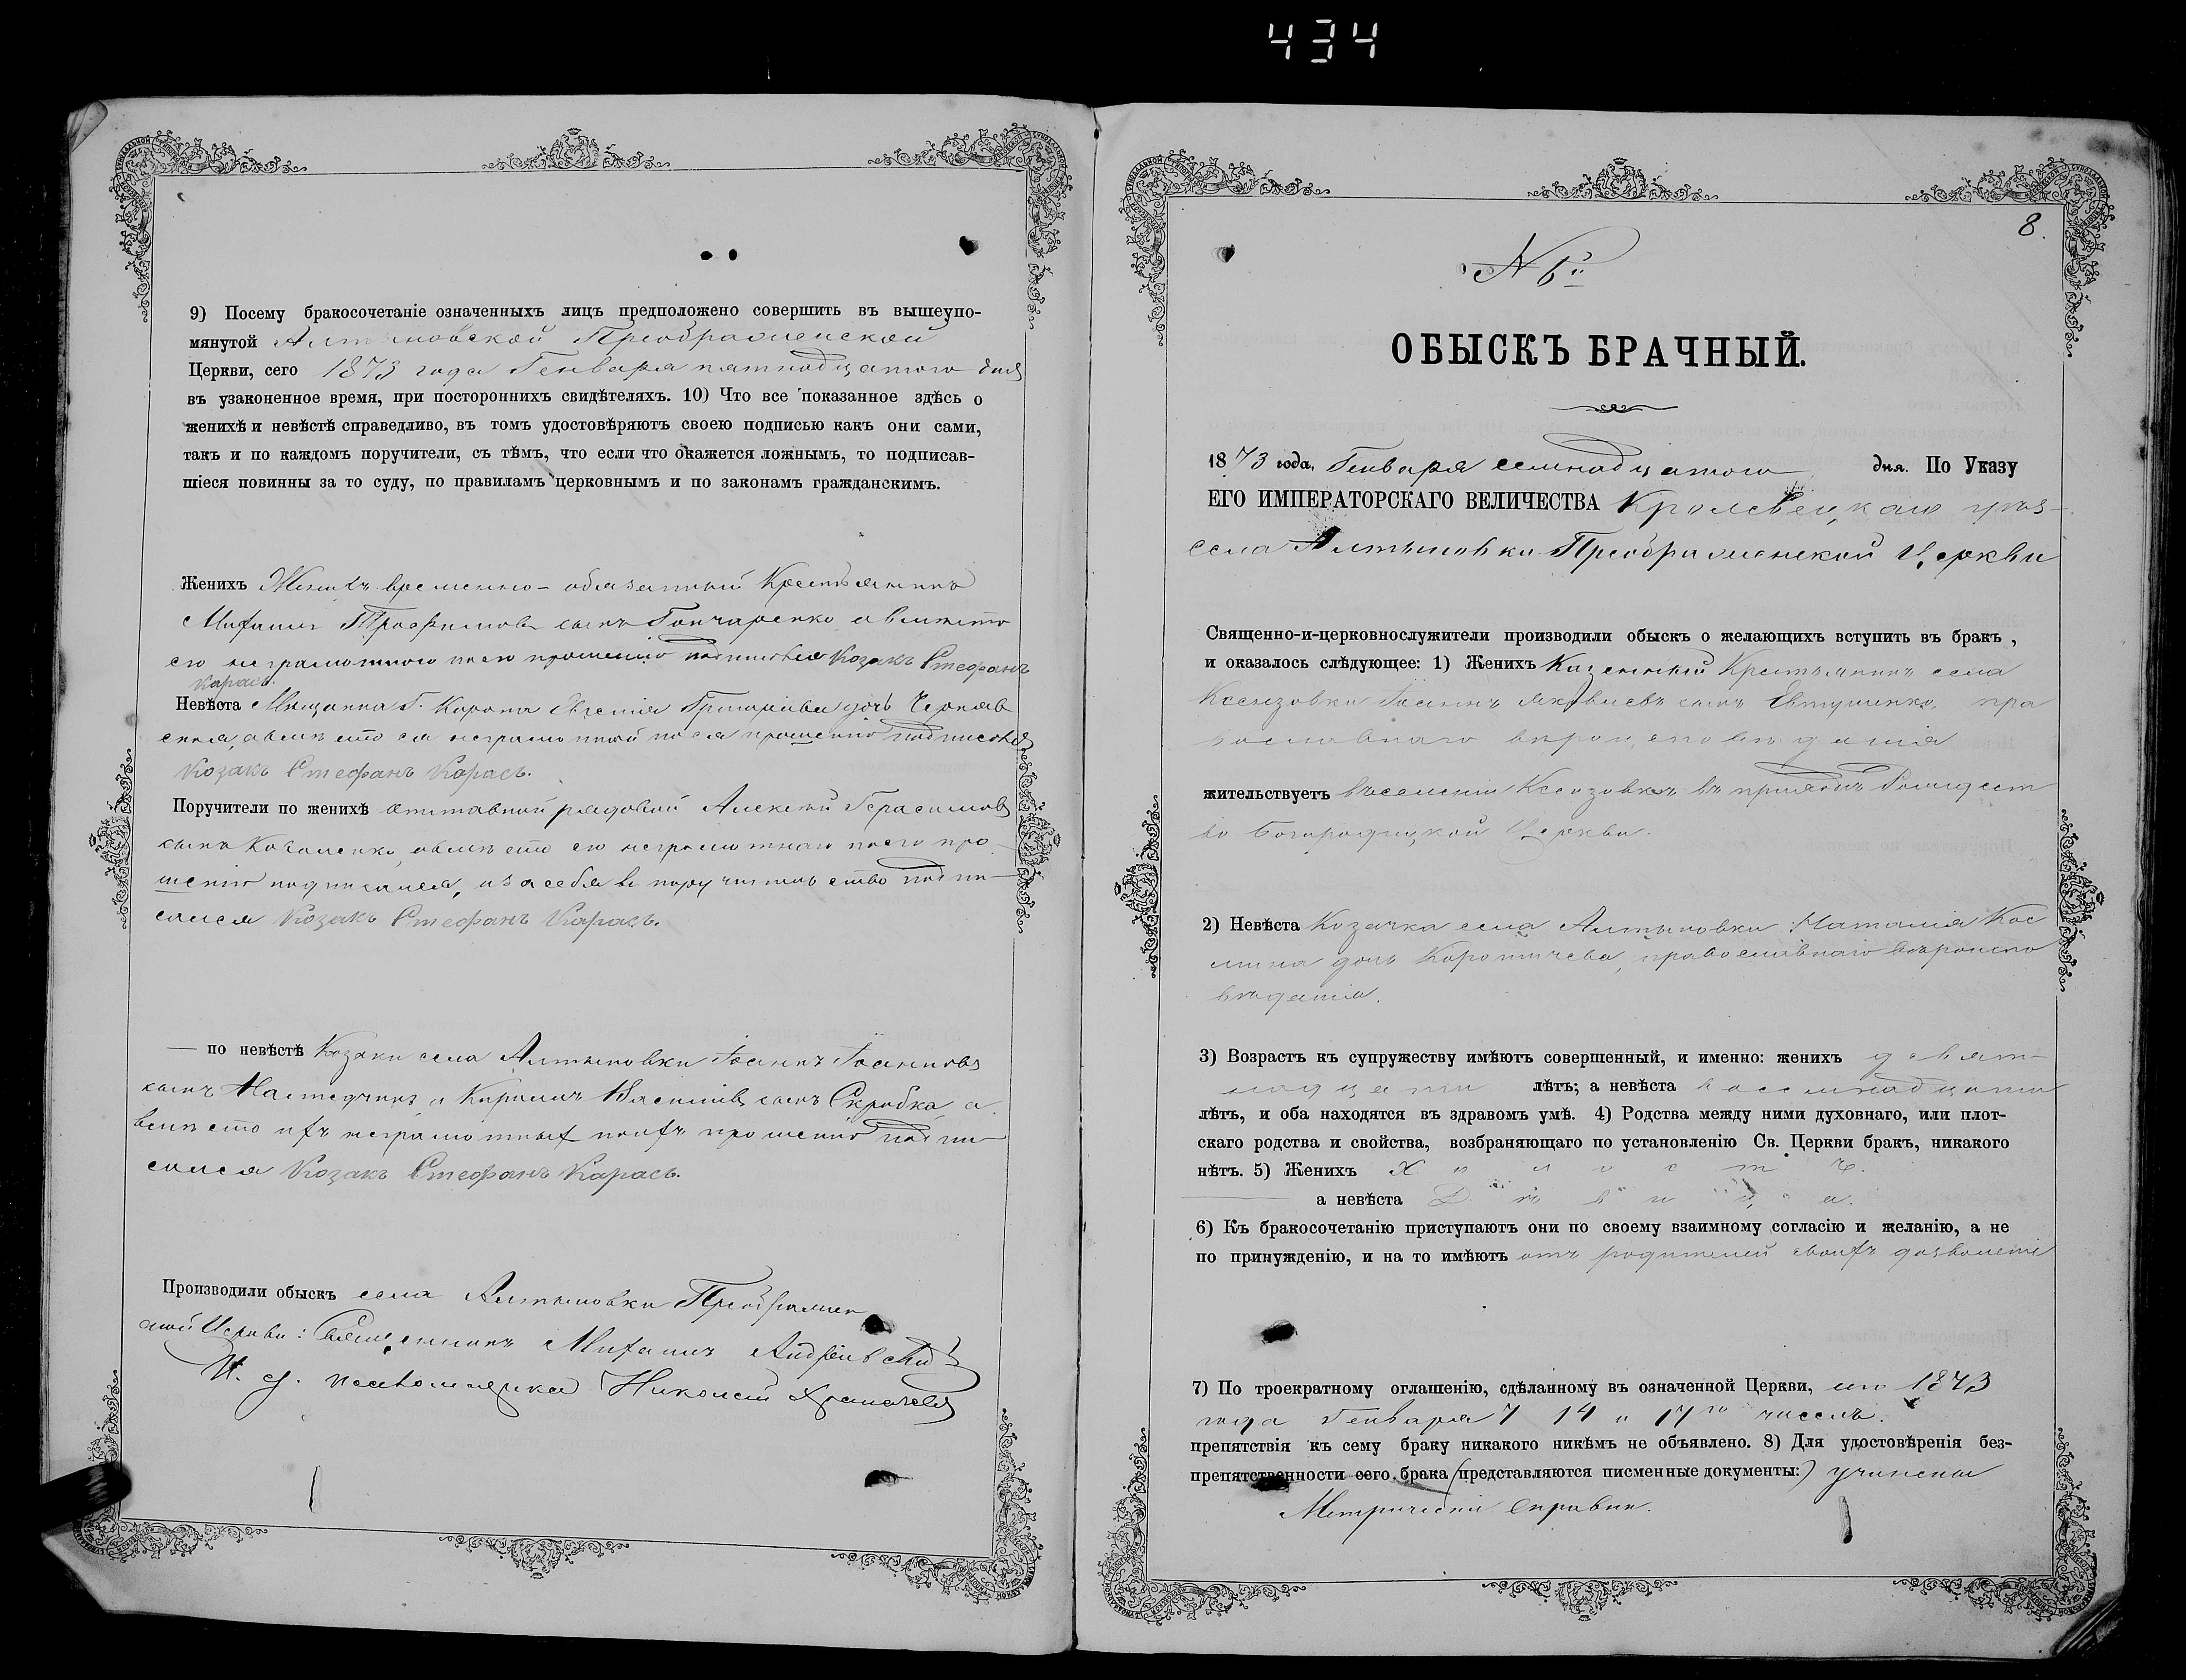 434
9) Посему бракосочетаніе означенныхъ лицъ предположено совершить въ вышеупо-
мянутой Алтыновской Преображенской
Церкви, сего 1873 года Генваря пятнадцатого дня
въ узаконенное время, при постороннихъ свидѣтеляхъ. 10) Что все показанное здѣсь о
женихѣ и невѣстѣ справедливо, въ томъ удостовѣряютъ своею подписью какъ они сами,
такъ и по каждомъ поручители, съ тѣмъ, что если что окажется ложнымъ, то подписав-
шіеся повинны за то суду, по правиламъ церковнымъ и по законамъ гражданскимъ.
Женихъ Женихъ временно-обязанный Крестьянинъ
Михаилъ Трофимовъ сынъ Гончаренко а вместо
его неграмотного по его прошенію подписался Козакъ Стефанъ
Карась.
Невѣста Мещанка Г. Коропа Евгенія Григоріева дочь Черняв
ская, а вместо ея неграмотной по ея прошенію подписался
Козакъ Стефанъ Карась.
Поручители по женихѣ отставной рядовой Алексій Герасимовъ
сынъ Коваленко, а вместо его неграмотнаго по его про
шенію подписался, и за себя въ поручительство подпи-
сался Козакъ Стефанъ Карась.
— по невѣстѣ Козаки села Алтыновки Іоаннъ Іоанновъ
сынъ и Кириллъ Василіевъ сынъ Скробка а
вместо ихъ неграмотных по ихъ прошенію подпи-
сался Козакъ Стефанъ Карась.
Производили обыскъ села Алтыновки Преображен
ской Церкви: Священникъ Михаилъ Андріевскій
И. д. псаломщика Николай
8.
№ 6й
ОБЫСКЪ БРАЧНЫЙ.
1873 года, Генваря семнадцатого дня. По Указу
ЕГО ИМПЕРАТОРСКАГО ВЕЛИЧЕСТВА Кролевецкаго уѣз-
села Алтыновки Преображенской Церкви
Священно-и-церковнослужители производили обыскъ о желающихъ вступить въ бракъ,
и оказалось слѣдующее: 1) Женихъ Казенный Крестьянинъ села
Ксензовки Іоаннъ Яковлевъ сынъ Евтушенко, пра
вославнаго вероисповеданія
жительствуетъ въ селеніи Ксензовкѣ въ приходѣ Рождест
во Богородицкой Церкви.
2) Невѣста Козачка села Алтыновки Наталія Кос
мина дочь Коротичева, православнаго вероиспо
веданія.
3) Возрастъ къ супружеству имѣютъ совершенный, и именно: женихъ девят-
надцати лѣтъ; а невѣста восемнадцати
лѣтъ, и оба находятся въ здравомъ умѣ. 4) Родства между ними духовнаго, или плот-
скаго родства и свойства, возбраняющаго по установленію Св. Церкви бракъ, никакого
нѣтъ. 5) Женихъ Холостъ.
а невѣста Дѣвица.
6) Къ бракосочетанію приступаютъ они по своему взаимному согласію и желанію, а не
по принужденію, и на то имѣютъ отъ родителей своихъ дозволеніе
7) По троекратному оглашенію, сдѣланному въ означенной Церкви, сего 1873
года Генваря 7 14 и 17го числъ.
препятствія къ сему браку никакого никѣмъ не объявлено. 8) Для удостовѣренія без-
препятственности сего брака (представляются писменные документы:) учинены
Метрическіе справки.